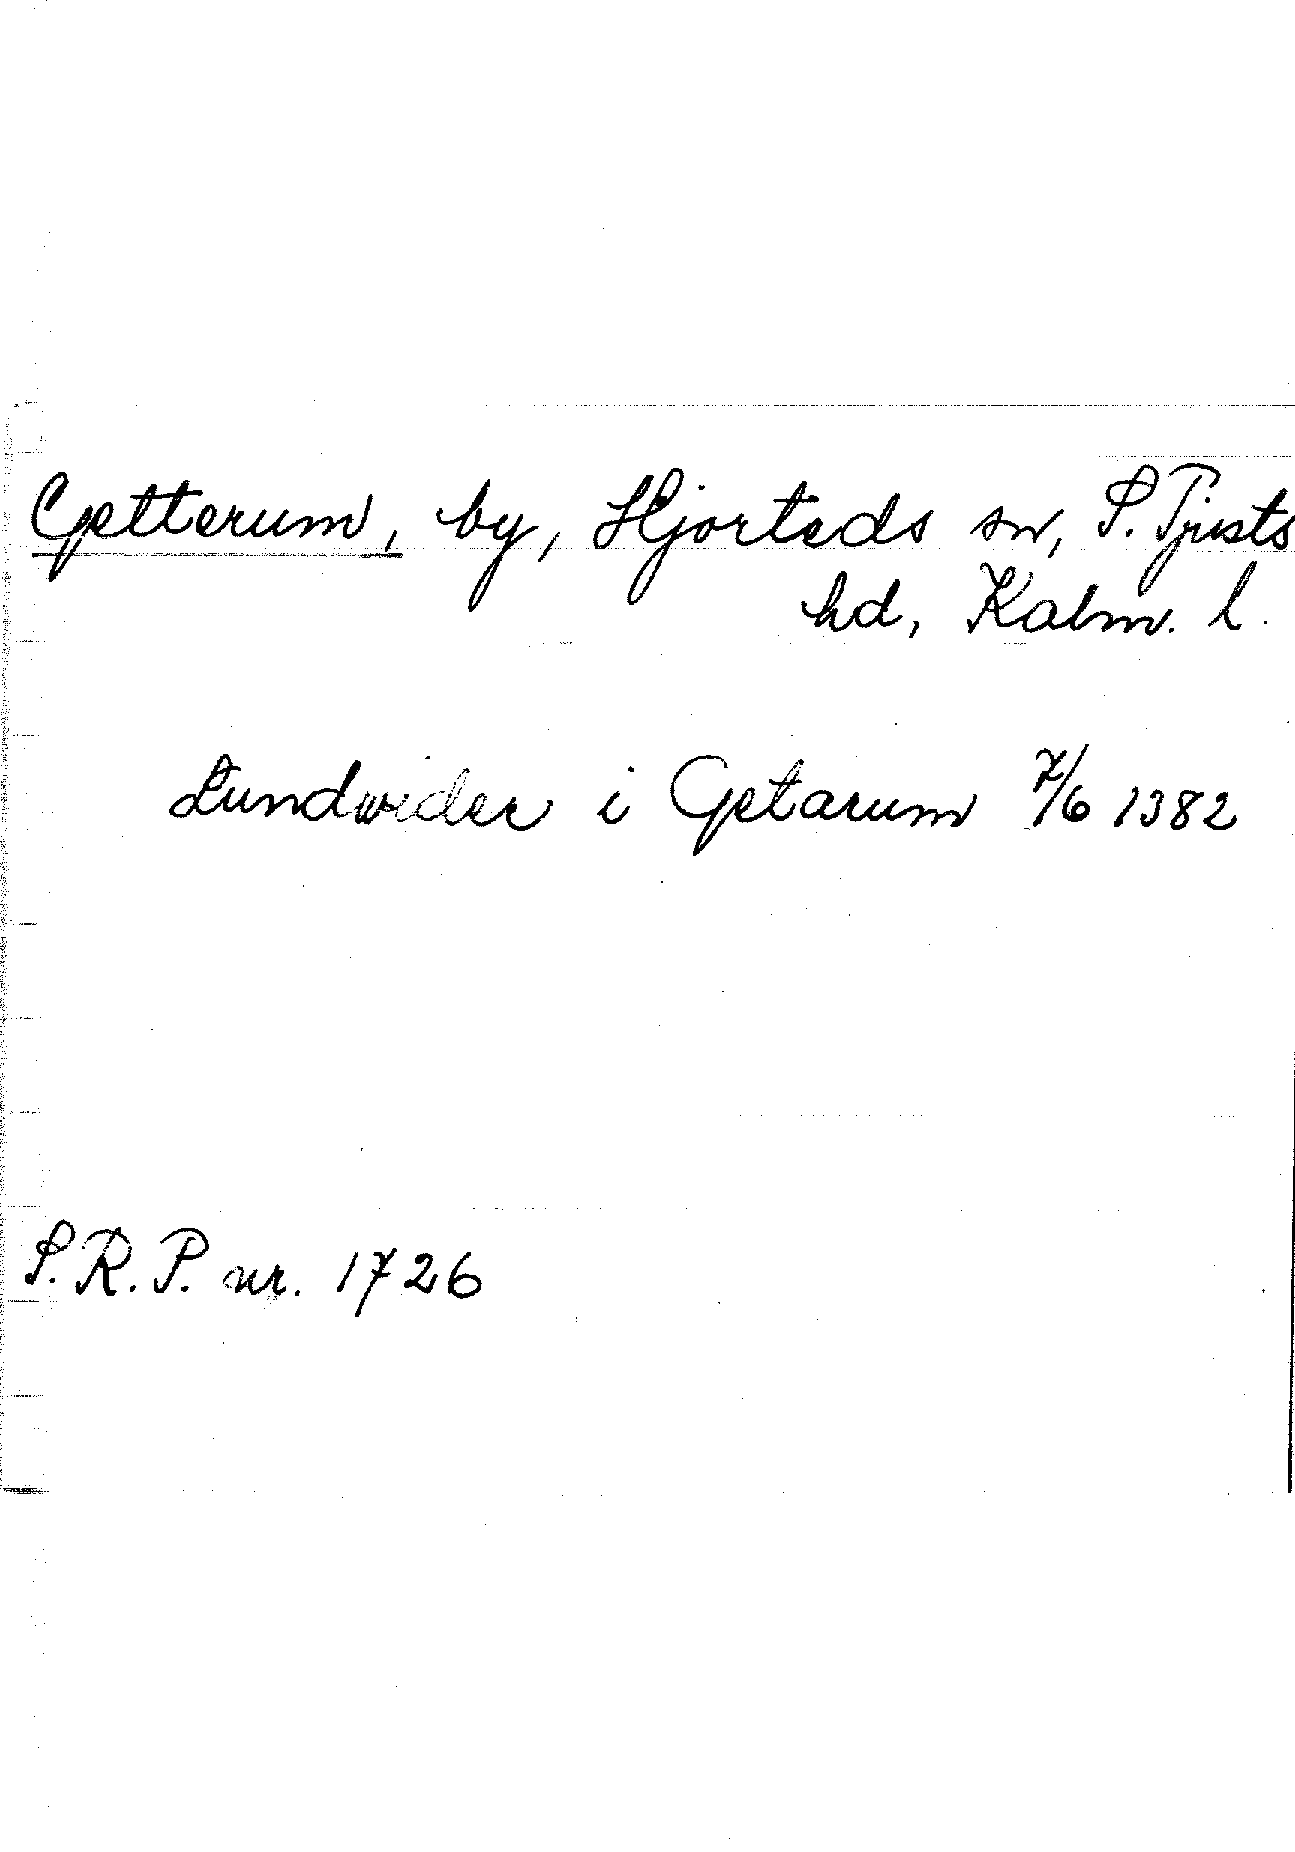 Getterum, by, Hjorteds sn, S. Tjusts
hd, Kalm. l.
Lundvider i Getarum 7/6 1382
S.R.P. nr. 1726